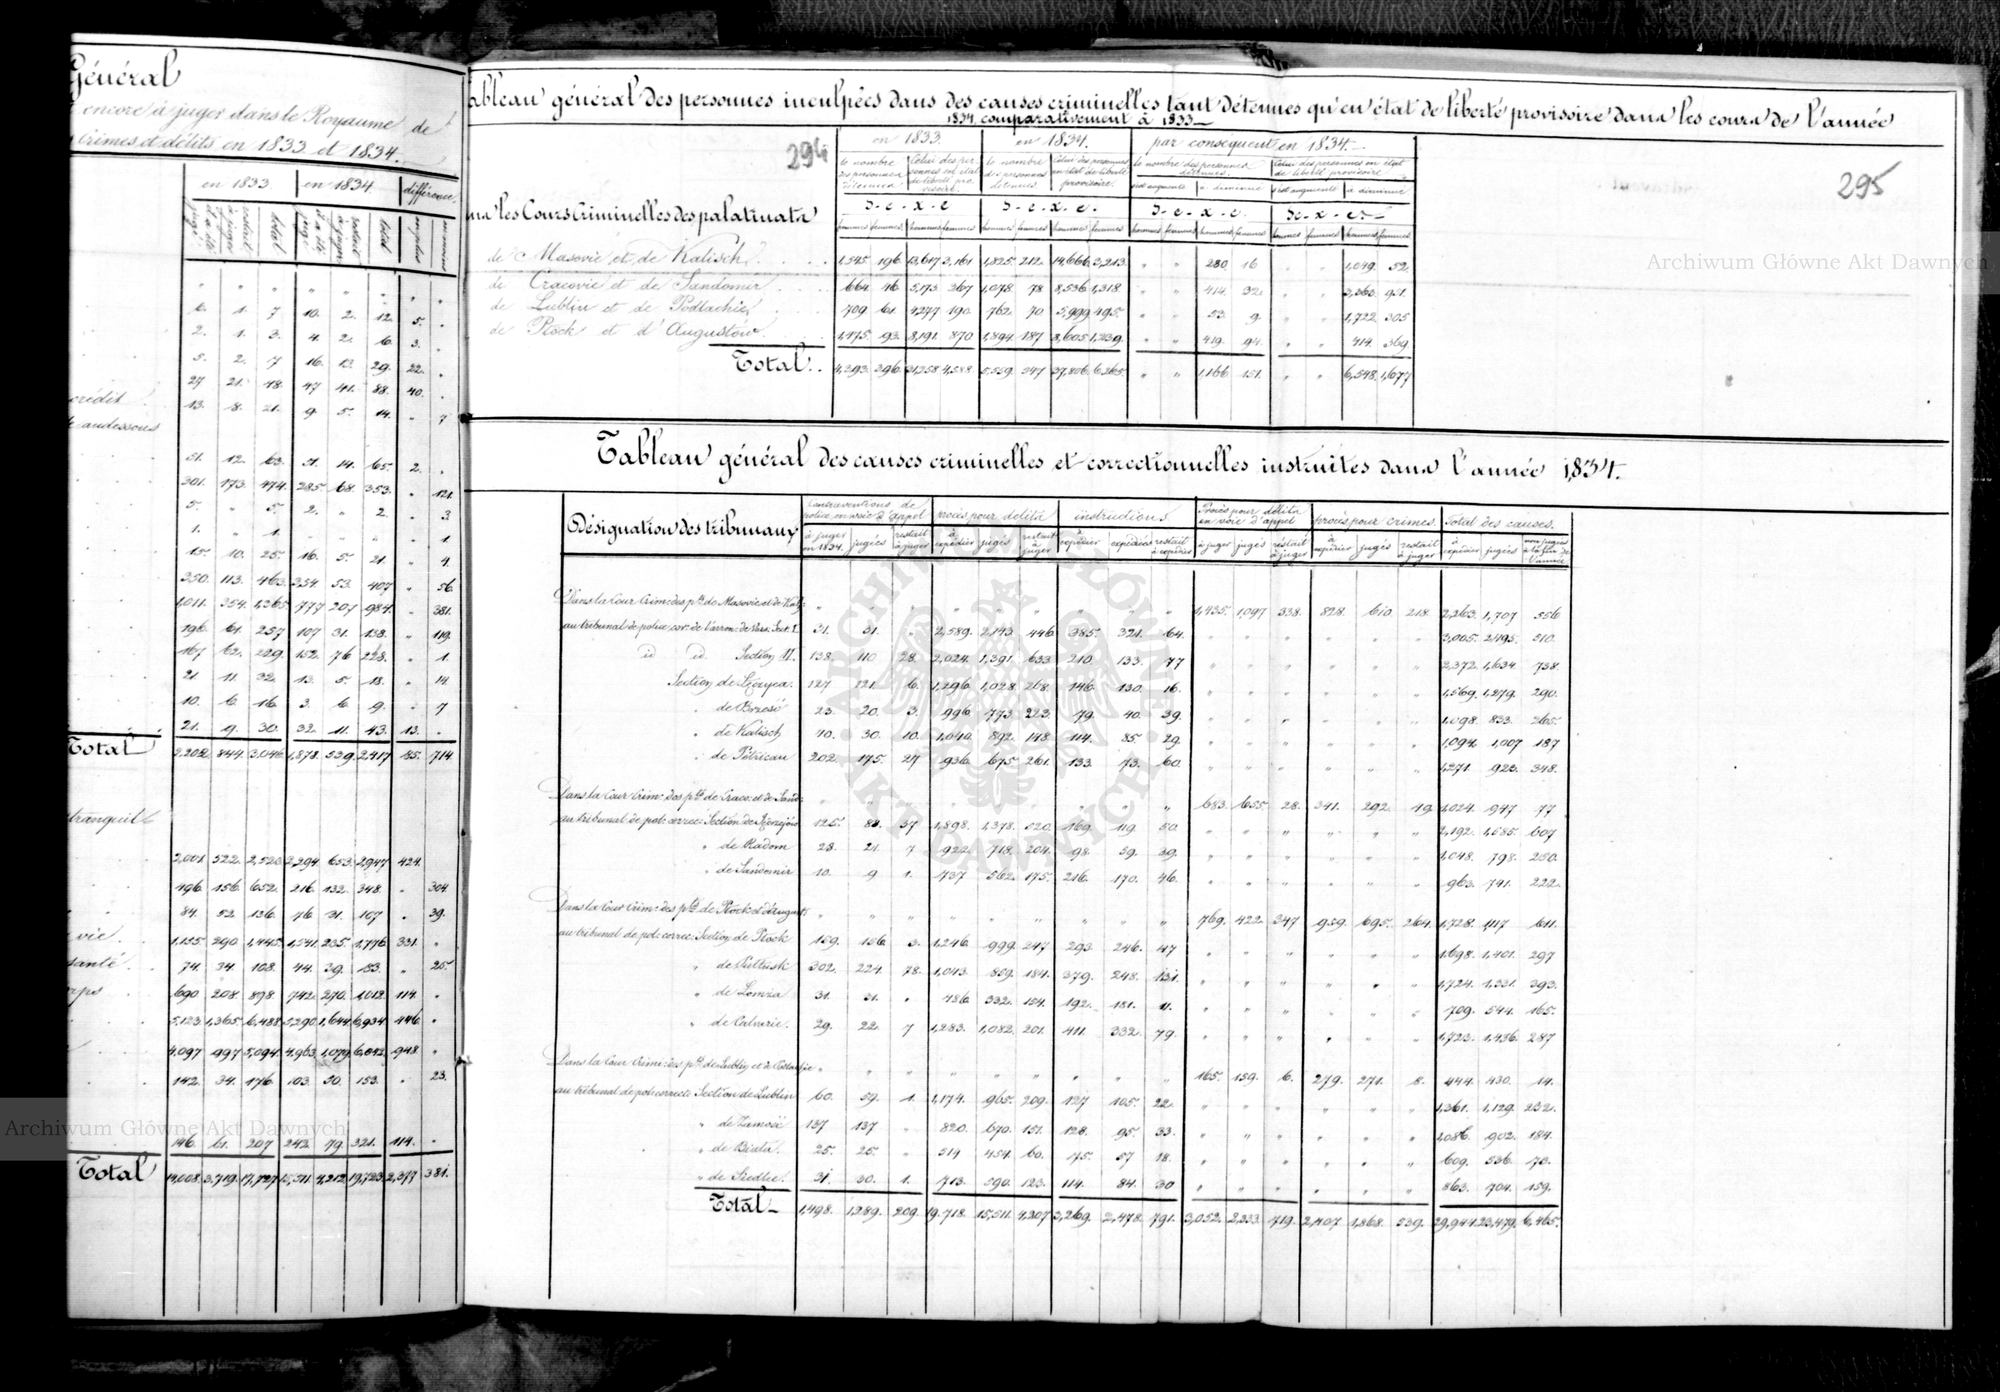 Général
encore à juger dans le Royaume de
crimes et délits en 1833 et 1834.
en 1833. en 1834. différence.
jugé restait à juger total jugé restait à juger total en plus en moins
" " " " " " " "
6. 1. 7 10. 2. 12. 5. "
2. 1. 3. 4. 2. 6. 3. "
5. 2. 7 16. 13. 29. 22. "
27 21. 48. 47 41. 88. 40. "
crédit
13. 8. 21. 9. 5. 14. " 7
au dessous
51. 12. 63. 51. 14. 65. 2. "
301. 173. 474. 285. 68. 353. " 121.
5. " 5. 2. " 2. " 3
1. " 1. " " " " 1
15. 10. 25. 16. 5. 21. " 4.
350. 113. 463. 354. 53. 407 " 56.
1,011. 354. 1,365. 777 207 984. " 381.
196. 61. 257 107 31. 138. " 119.
167 62. 229. 152. 76 228. " 1.
21 11. 32. 13. 5. 18. " 14.
10. 6. 16. 3. 6. 9. " 7
21. 9. 30. 32. 11. 43. 13. "
Total 2,202. 844. 3,046. 1,878. 539. 2,417 85. 714.
tranquil
2,001. 522. 2,523. 2,294. 653. 2,947 424.
496. 156. 652. 216. 132. 348. " 304
84. 52. 136. 76 31. 107 " 39.
vie. 1,155. 290. 1,445. 1,541. 235. 1,776. 331. "
santé 74. 34. 108. 44. 39. 83. " 25.
690. 208. 898. 742. 270. 1,012. 114. "
5,123. 1,365. 6,488. 5,290. 1,644. 6,934. 446. "
4,097 997 5,094. 4,963. 1,079. 6,042. 948 "
142. 34. 176. 103. 50. 153. " 23.
146. 61. 207 242. 79. 321. 114. "
Total 14,008. 3,719. 17,727 15,511. 4,212. 19,723. 2,377 381.
ableau général des personnes inculpées dans des causes criminelles tant détenues qu'en état de liberté provisoire dans les cours de l'année
1834. comparativement à 1833.
294
295
en 1833. en 1834. par conséquent en 1834.
le nombre des personnes détenues Celui des personnes en état de liberté provisoire. le nombre des personnes détenues Celui des personnes en état de liberté provisoire. le nombre des personnes détenues. Celui des personnes en état de liberté provisoire
est augmenté a diminué est augmenté a diminué
les Cours Criminelles des palatinats
s.e.x.e s.e.x.e. s.e.x.e. s.e.x.e.
hommes femmes hommes femmes hommes femmes hommes femmes hommes femmes hommes femmes hommes femmes hommes femmes
de Masovie et de Kalisch 1,545 196. 13,617 3,161 1,825. 212. 14,666. 3,213. " " 280. 16 " " 1,049. 52.
de Cracovie et de Sandomir 664. 46 5,173 367 1,078. 78 8,536. 1,318 " " 414. 32. " " 3,363. 951.
de Lublin et de Podlachie 709 61. 4,277 190. 762. 70. 5,999. 495. " " 53. 9. " " 1,722. 305
de Plock et d'Augustów 1,475. 93. 8,191. 870 1,894. 187 8,605. 1,239. " " 419. 94. " " 414. 369
Total 4,393. 396. 31,258 4,588. 5,559. 547 37,806. 6,265. " " 1,166 151. " " 6,548. 1,677
Tableau général des causes criminelles et correctionnelles instruites dans l'année 1,834.
Désignation des tribunaux
Contraventions de police en voie d'appel procès pour délits instructions Procès pour délits en voie d'appel procès pour crimes. Total des causes.
à juger en 1834. jugées restait à juger à expédier jugés restait à juger à expédier expédiées restait à expédier à juger jugés restait à juger à expédier jugés restait à juger à expédier jugées non jugées à la fin de l'année
Dans la Cour Crim: des pts de Masovie et de Kal: " " " " " " " " " 1,435. 1,097 338. 828. 610. 218. 2,263. 1,707 556
au tribunal de police cor: de l'arron: de Vars: Sect. I. 31. 31. " 2,589. 2,143 446. 385. 321. 64. " " " " " " 3,005. 2,495. 510.
id id Section II. 138. 110 28. 2,024. 1,391 633. 210. 133. 77 " " " " " " 2,372. 1,634. 738.
Section de Łęczyca. 127 121. 6. 1,296. 1,028. 268. 146. 130. 16. " " " " " " 1,569. 1,279. 290.
" de Brześć 23. 20. 3. 996. 773. 223. 79. 40. 39. " " " " " " 1,098. 833. 265.
" de Kalisch 40. 30. 10. 1,040. 892. 148. 114. 85. 29. " " " " " " 1,094. 1,007 187
" de Pétricau 202. 175. 27 936. 675. 261. 133. 73. 60. " " " " " " 1,271. 923. 348.
Dans la Cour Crim: des pts de Craco: et de Sand: " " " " " " " " " 683. 655. 28. 341. 292. 49. 1,024. 947 77
au tribunal de pol: correc: Section de 125. 88. 37 1,898. 1,378. 520. 169. 119. 50. " " " " " " 2,192. 1,585. 607
" de Radom 28. 21. 7 922. 718. 204. 98. 59. 39. " " " " " " 1,048. 798. 250.
" de Sandomir 10. 9 1. 737 562. 175. 216. 170. 46. " " " " " " 963. 741. 222.
Dans la Cour Crim: des pts de Plock et d'August: " " " " " " " " " 769. 422. 347 959. 695. 264. 1,728. 1,117 611.
au tribunal de pol: correc: Section de Plock 159. 156. 3. 1,246. 999. 247 293. 246. 47 " " " " " " 1,698. 1,401. 297
" de Pultusk 302. 224. 78. 1,043. 859. 184. 379. 248. 131. " " " " " " 1,724. 1,331. 393.
" de Lomza 31. 31. " 486. 332. 154. 192. 181. 11. " " " " " " 709. 544. 165.
" de Calvarie. 29. 22. 7 1,283. 1,082. 201. 411. 332. 79. " " " " " " 1,723. 1,436. 287
Dans la Cour Crim: des pts de Lublin et de Podlachie " " " " " " " " " 165. 159. 6. 279. 271. 8. 444. 430. 14.
au tribunal de pol: correct: Section de Lublin 60. 59. 1. 1,174. 965. 209. 127 105. 22. " " " " " " 1,361. 1,129. 232.
" de Zamość 137 137 " 820. 670. 151. 128. 95. 33. " " " " " " 1,086. 902. 184.
" de Biala. 25. 25. " 514 454. 60. 75. 57 18. " " " " " " 609. 536. 73.
" de Siedlec. 31. 30. 1. 713. 590. 123. 114. 84. 30 " " " " " " 863. 704. 159.
Total 1,498. 1,289. 209. 19,718. 15,511. 4,207 3,269. 2,478. 791. 3,052. 2,333. 719. 2,407. 1,868. 539. 29,944. 23,479. 6,465.
Archiwum Główne Akt Dawnych
Archiwum Główne Akt Dawnych
ARCHIWUM GŁÓWNE AKT DAWNYCH